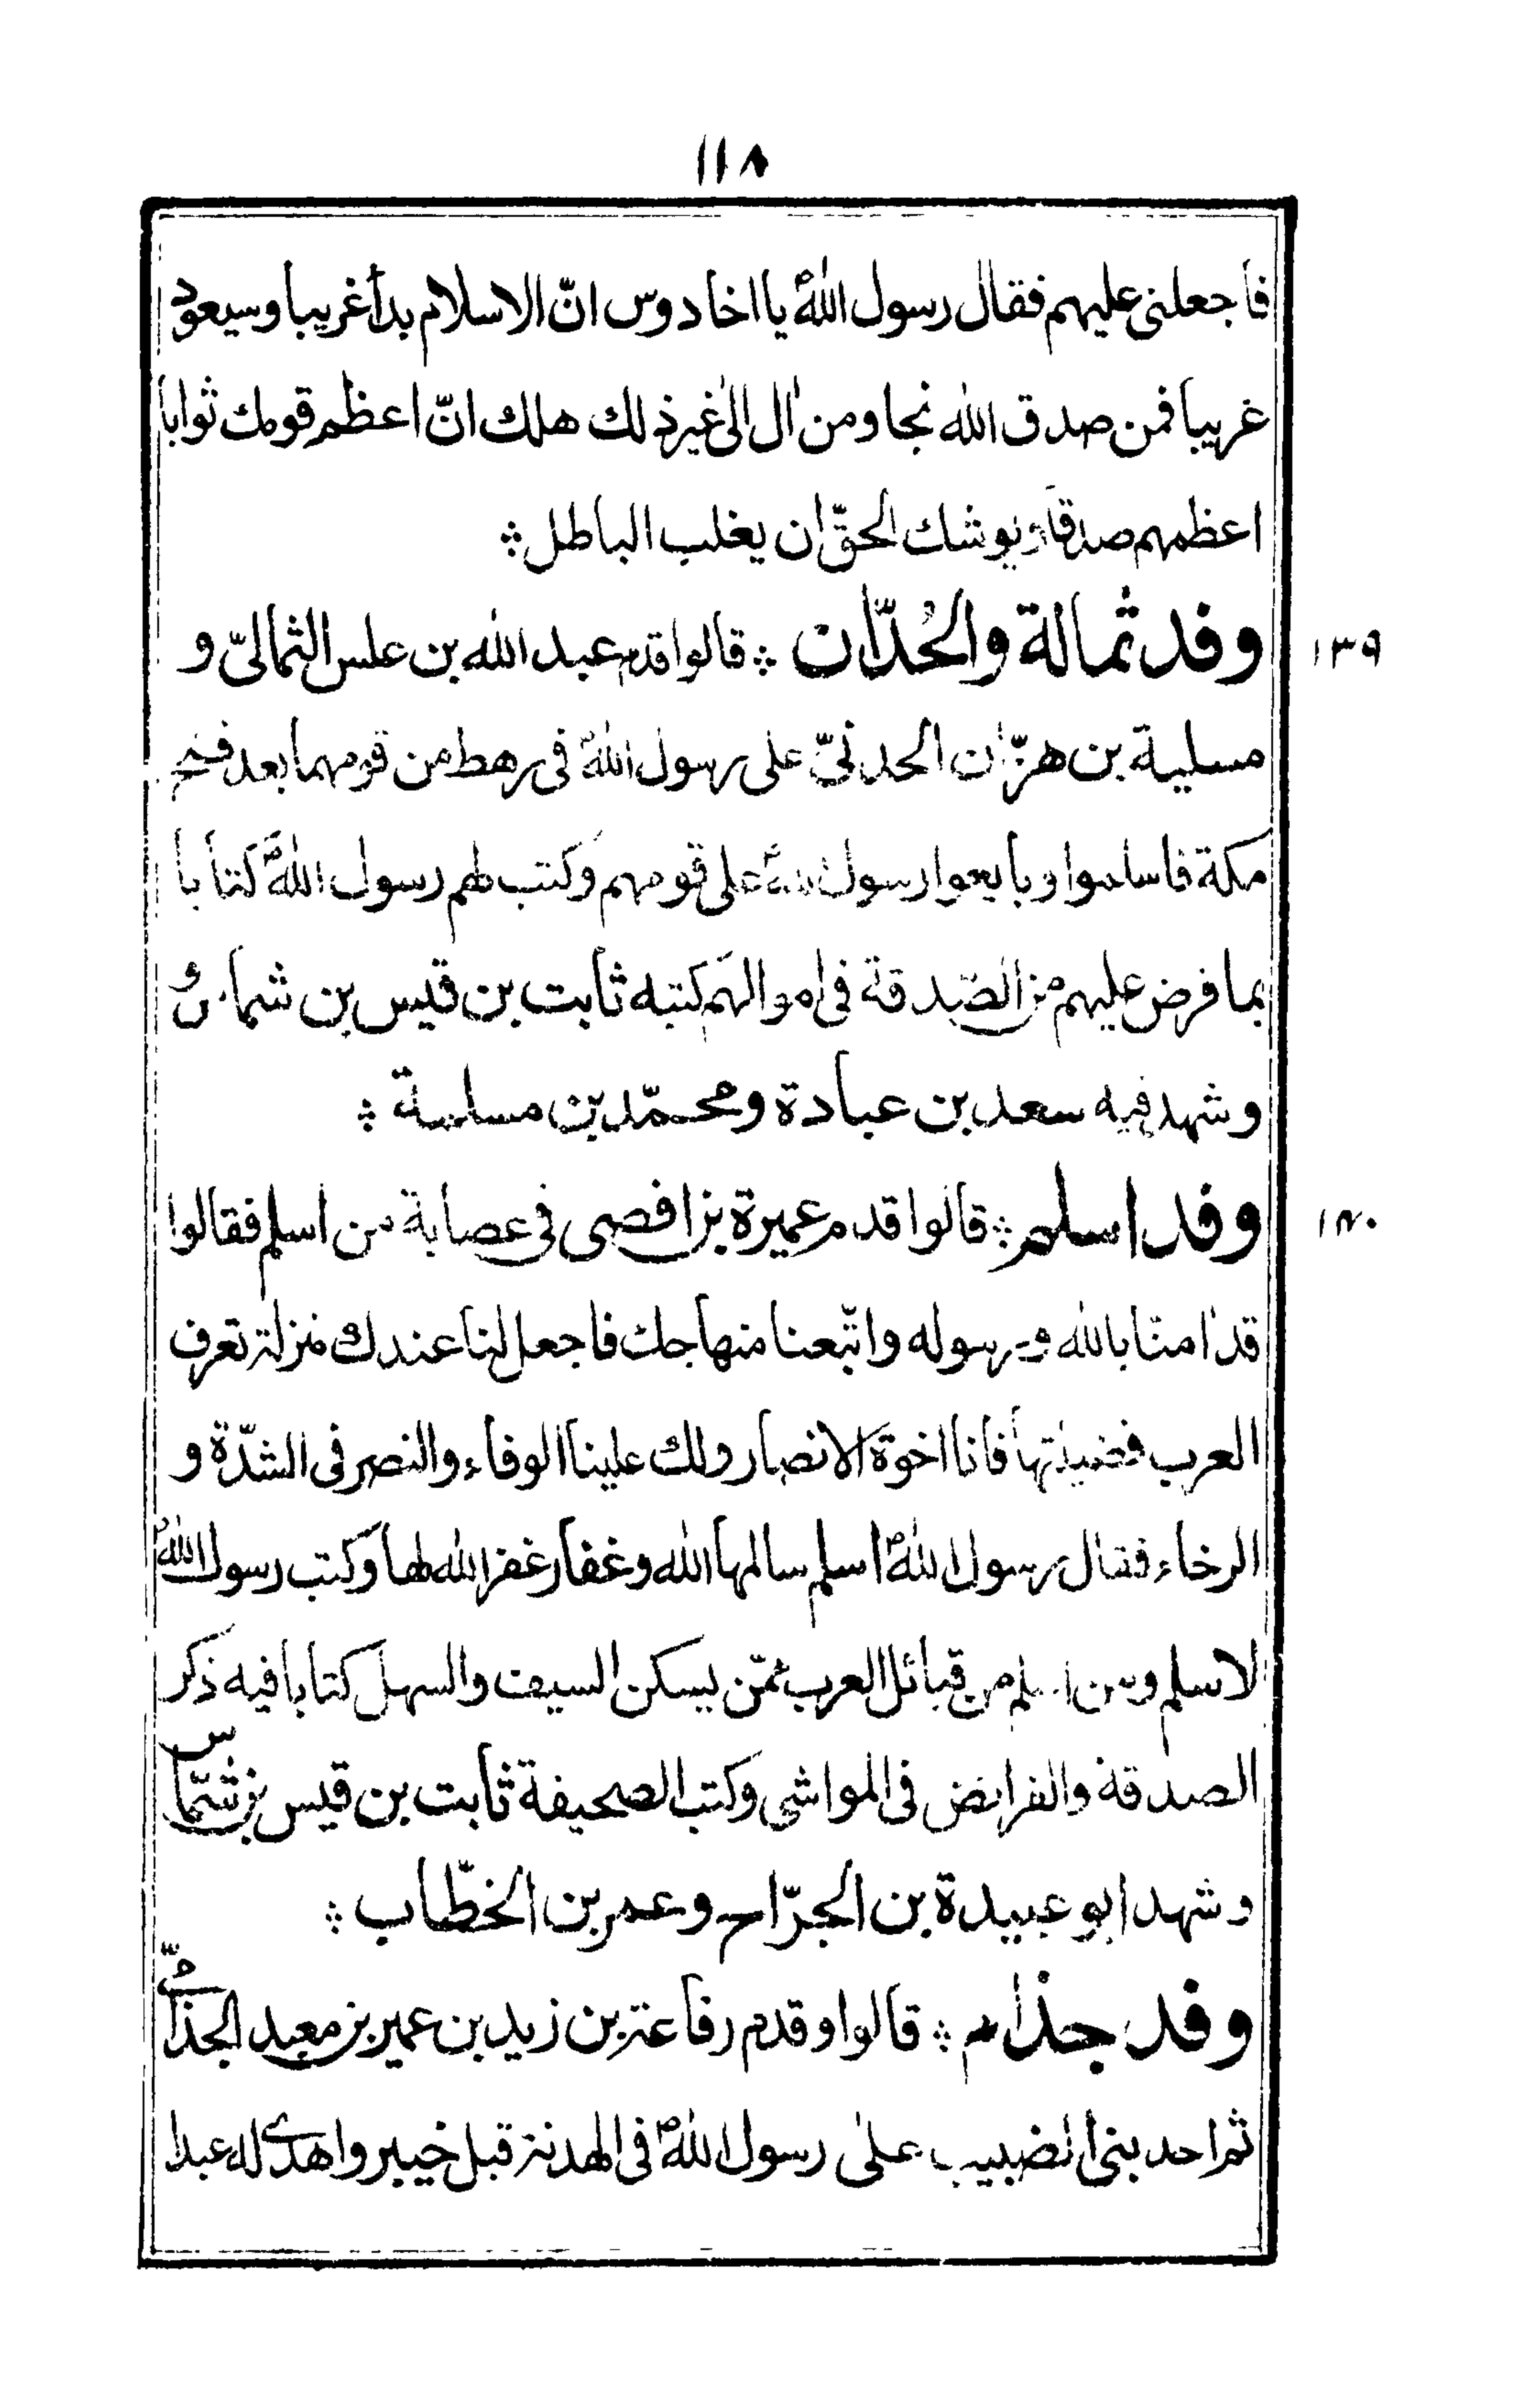 ١١٨
فاجعلنى عليهم فقال رسول اللهؐ يا اخا دوس انّ الاسلام بدأ غريبا وسيعود
غريبا فمن صدق الله نجا ومن اٰل الى غير ذلك هلك انّ اعظم قومك ثوابا
اعظمهم صدقا ويوشك الحقّ ان يغلب الباطل ؞
١٣٩
وفد ثمالة والحُدّان ؞ قالوا قدم عبد الله بن علس الثمالىّ و
مسلية بن هزّان الحدنىّ على رسول اللهؐ فى رهط من قومهما بعد فتح
مكة فاسلموا وبايعوا رسول اللهؐ على قومهم وكتب لهم رسول اللهؐ كتابا
بما فرض عليهم من الصّدقة فى اموالهم كتبه ثابت بن قيس بن شماس
وشهد فيه سعد بن عبادة ومحمّد بن مسلمة ؞
١٤٠
وفد اسلم ؞ قالوا قدم عميرة بن افصى فى عصابة من اسلم فقالوا
قد اٰمنّا بالله وبرسوله واتّبعنا منهاجك فاجعل لنا عندك منزلة تعرف
العرب فضيلتها فانا اخوة الانصار ولك علينا الوفاء والنصر فى الشدّة و
الرخاء فقال رسول اللهؐ اسلم سالمها الله وغفار غفر الله لها وكتب رسول اللهؐ
لاسلم ومن اسلم من قبائل العرب ممّن يسكن السيف والسهل كتابا فيه ذكر
الصدقة والفرائض فى المواشى وكتب الصحيفة ثابت بن قيس بن شمّاس
وشهد ابو عبيدة بن الجرّاح وعمر بن الخطّاب ؞
وفد جذام ؞ قالوا وقدم رفاعة بن زيد بن عمير بن معبد الجذامىّ
ثم احد بنى الضبيب على رسول اللهؐ فى الهدنة قبل خيبر واهدى له عبدا